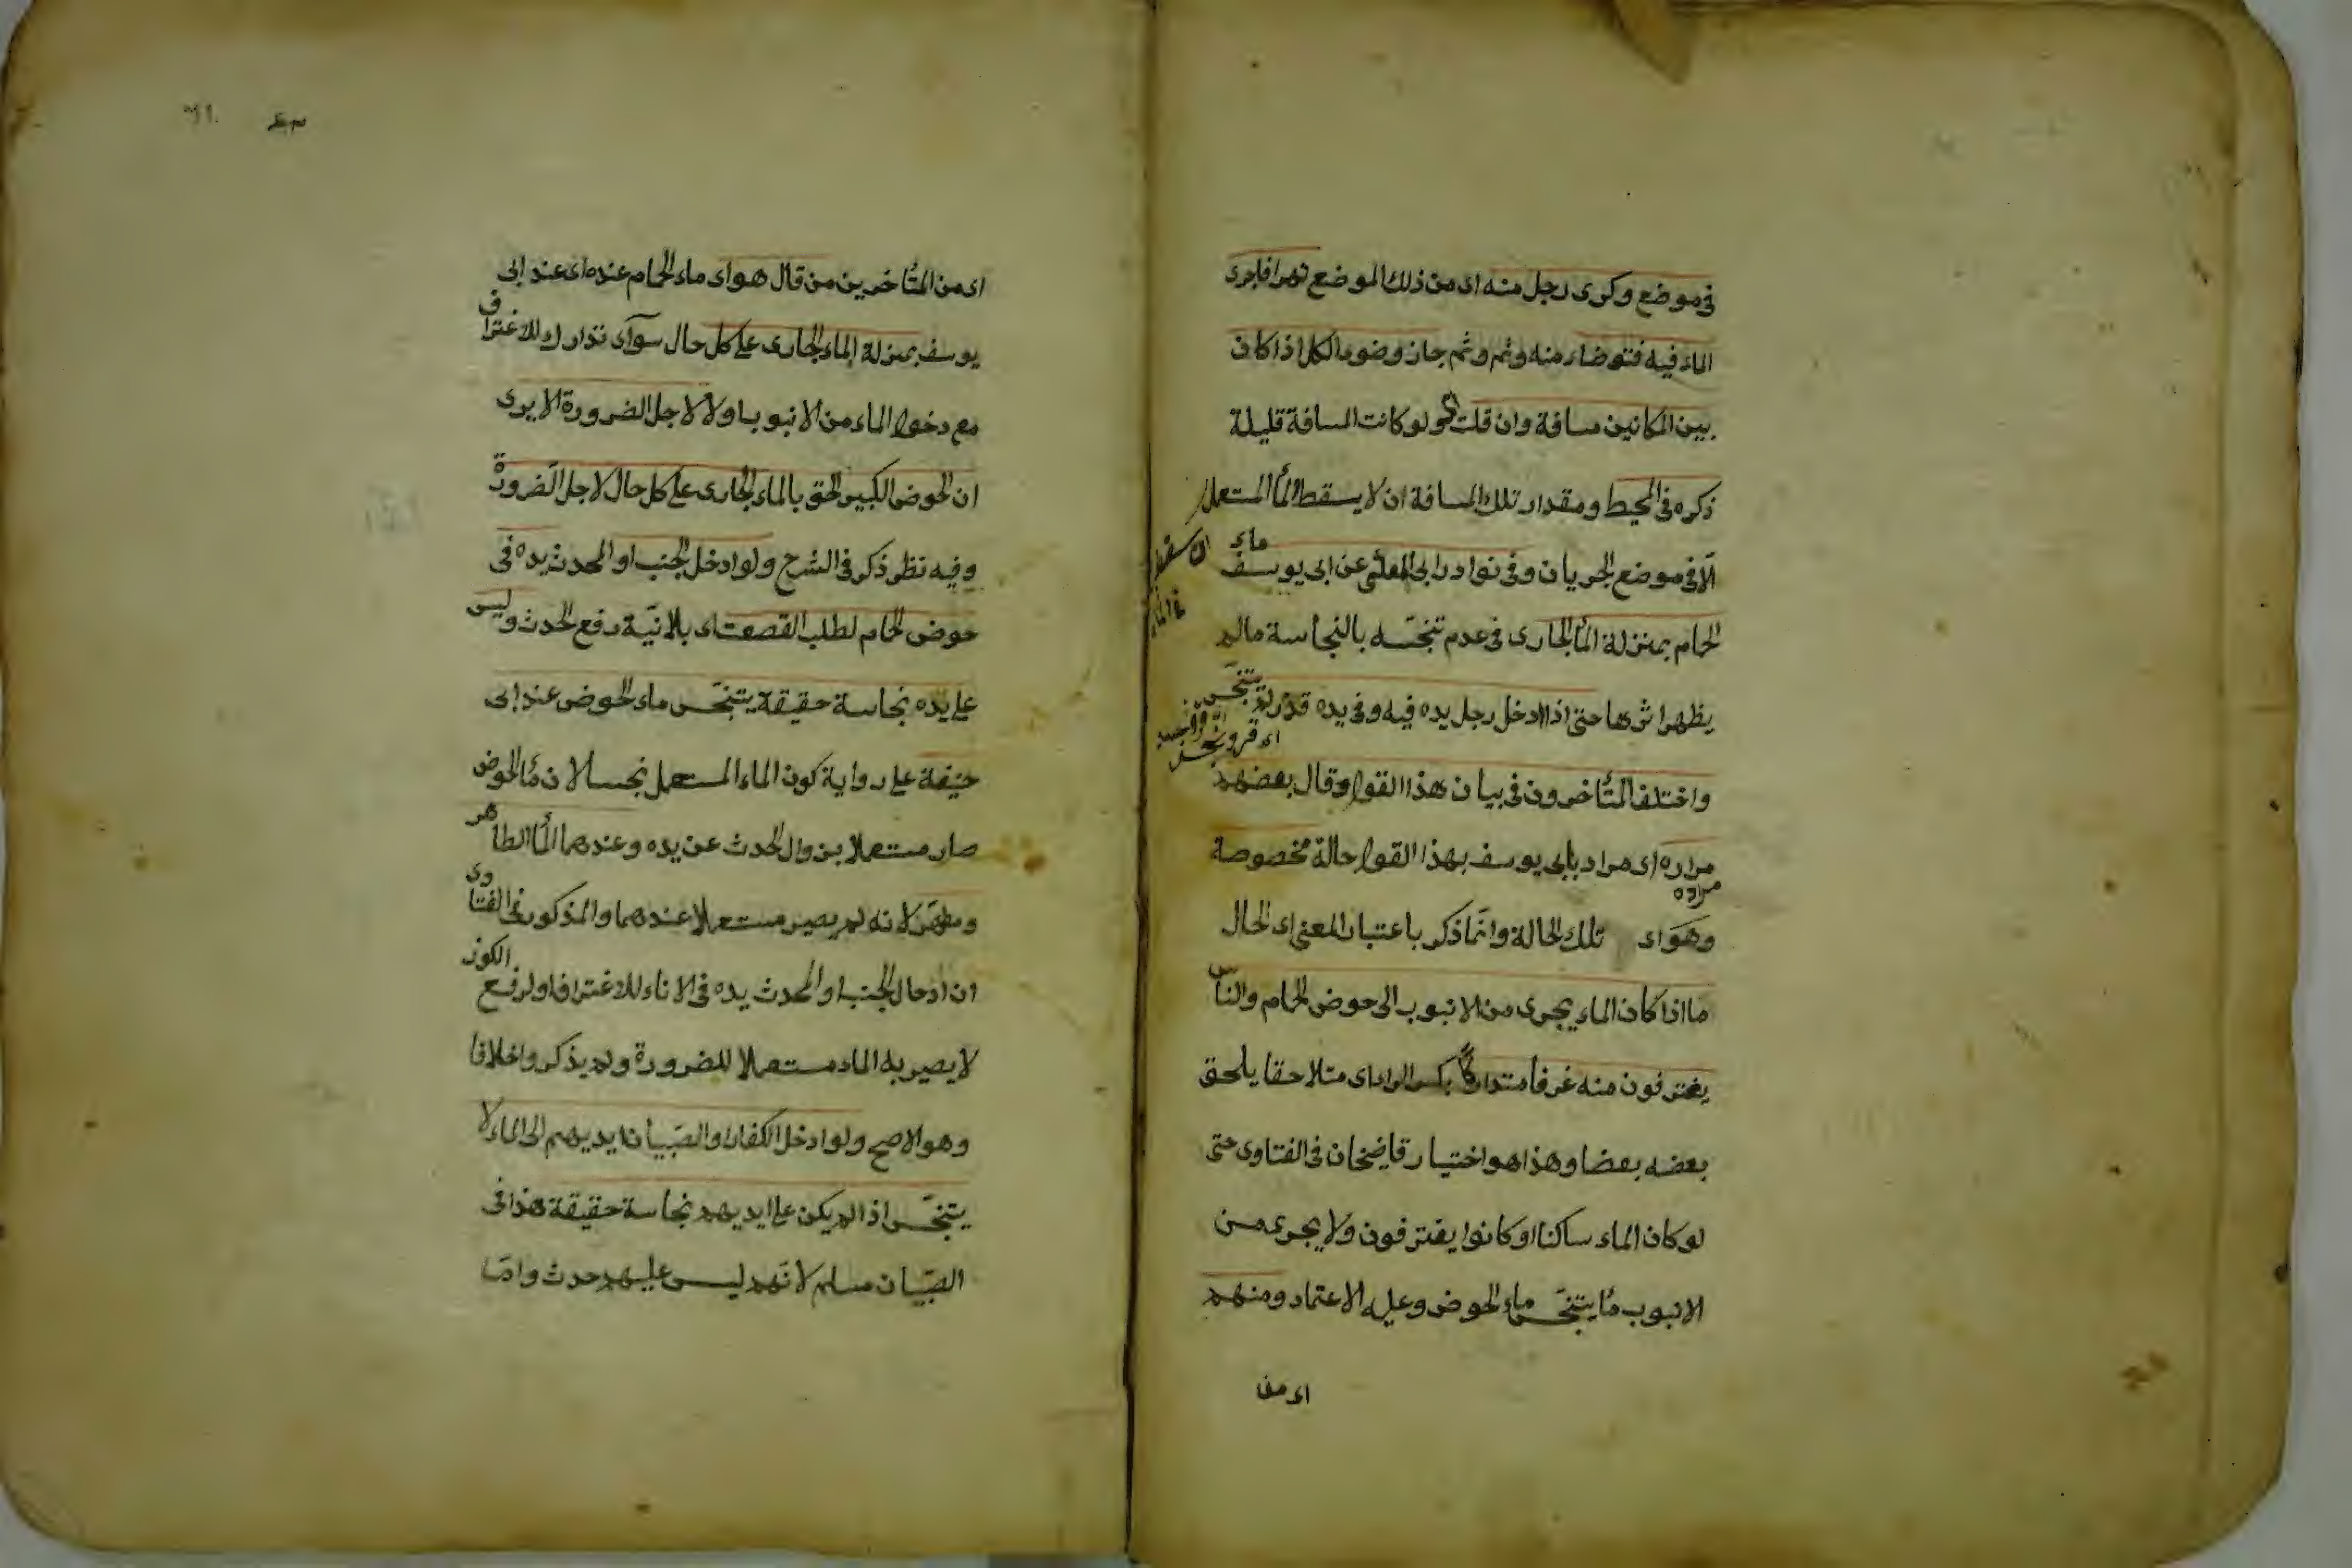 فى موضع وكرى رجل منه اى من ذلك الموضع نهرا فاجرى
الماء فيه فتوضاء منه وثم وثم جاز وضوء الكل اذا كان
بين المكانين مسافة وان قلت اى ولو كانت المسافة قليلة
ذكره فى المحيط ومقدار تلك المسافة ان لا يسقط الماء المستعمل
الّا فى موضع الجريان وفى نوادر ابى المعلّى عن ابى يوسف ماء
الحمام بمنزلة الماء الجارى فى عدم تنجّسه بالنجاسة مالم
يظهر اثرها حتى اذا ادخل رجل يده فيه وفى يده قذر لم يتنجّس
واختلف المتأخرون فى بيان هذا القول وقال بعضهم
مراره اى مراد بابى يوسف بهذا القول حالة مخصوصة
مراده
وهو اى تلك الحالة وانّما ذكر باعتبار المعنى اى الحال
ما اذا كان الماء يجرى من الانبوب الى حوض الحمام والناس
يغترفون منه غرفا متداركا بكسر الراء اى متلاحقا يلحق
بعضه بعضا وهذا هو اختيار قاضيخان فى الفتاوى حتى
لو كان الماء ساكنا او كانوا يغترفون ولا يجرى من
الانبوب ماء يتنجّس ماء الحوض وعليه الاعتماد ومنهم
اى من
اى من المتأخرين من قال هو اى ماء الحمام عنده اى عند ابى
يوسف بمنزلة الماء الجارى على كل حال سواء تدارك الاغتراف
مع دخول الماء من الانبوب او لا لاجل الضرورة الا يرى
ان الحوض الكبير الحق بالماء الجارى على كل حال لاجل الضرورة
وفيه نظر ذكر فى الشرح ولو ادخل الجنب او المحدث يده فى
حوض الحمام لطلب القصعة اى بلا نيّة رفع الحدث وليس
على يده نجاسة حقيقة يتنجّس ماء الحوض عند ابى
حنيفة على رواية كون الماء المستعمل نجسا لان ماء الحوض
صار مستعملا بزوال الحدث عن يده وعندهما الماء الطاهر
ومطهّر لانه لم يصير مستعملا عندهما والمذكور فى الفتاوى
ان ادخال الجنب او المحدث يده فى الاناء للاغتراف او لرفع الكوز
لا يصير به الماء مستعملا للضرورة ولم يذكروا خلافا
وهو الاصح ولو ادخل الكفار او الصّبيان ايديهم الى الماء لا
يتنجّس اذا لم يكن على ايديهم نجاسة حقيقة هذا فى
الصّبيان مسلم لانّهم ليس عليهم حدث وامّا